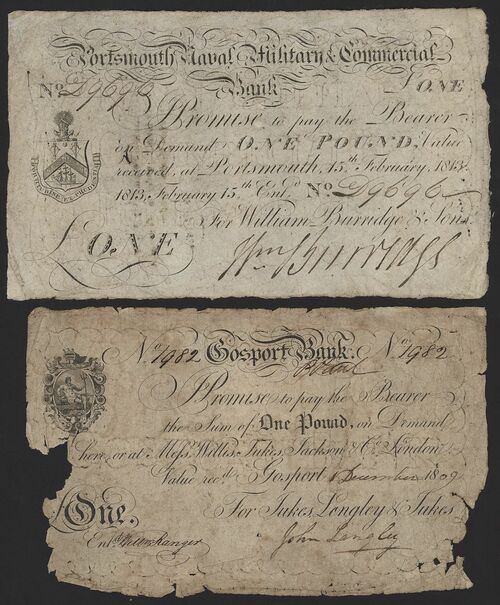 Portsmouth Naval Military & Commercial
Bank
No D9696 £ONE
I Promise to pay the Bearer
on Demand ONE POUND, Value
received, at Portsmouth, 15th February, 1813.
1813, February 15th Entd No D9696
For William Burridge & Sons
£ONE Wm Burridge
No 1982 Gosport Bank. No 1982
I Promise to pay the Bearer
the Sum of One Pound, on Demand
here, or at Messrs Willis, Tukes, Jackson & Co London
Value recd Gosport December 1809
£One. For Jukes Langley & Jukes
Entd Peter Ranger John Langley